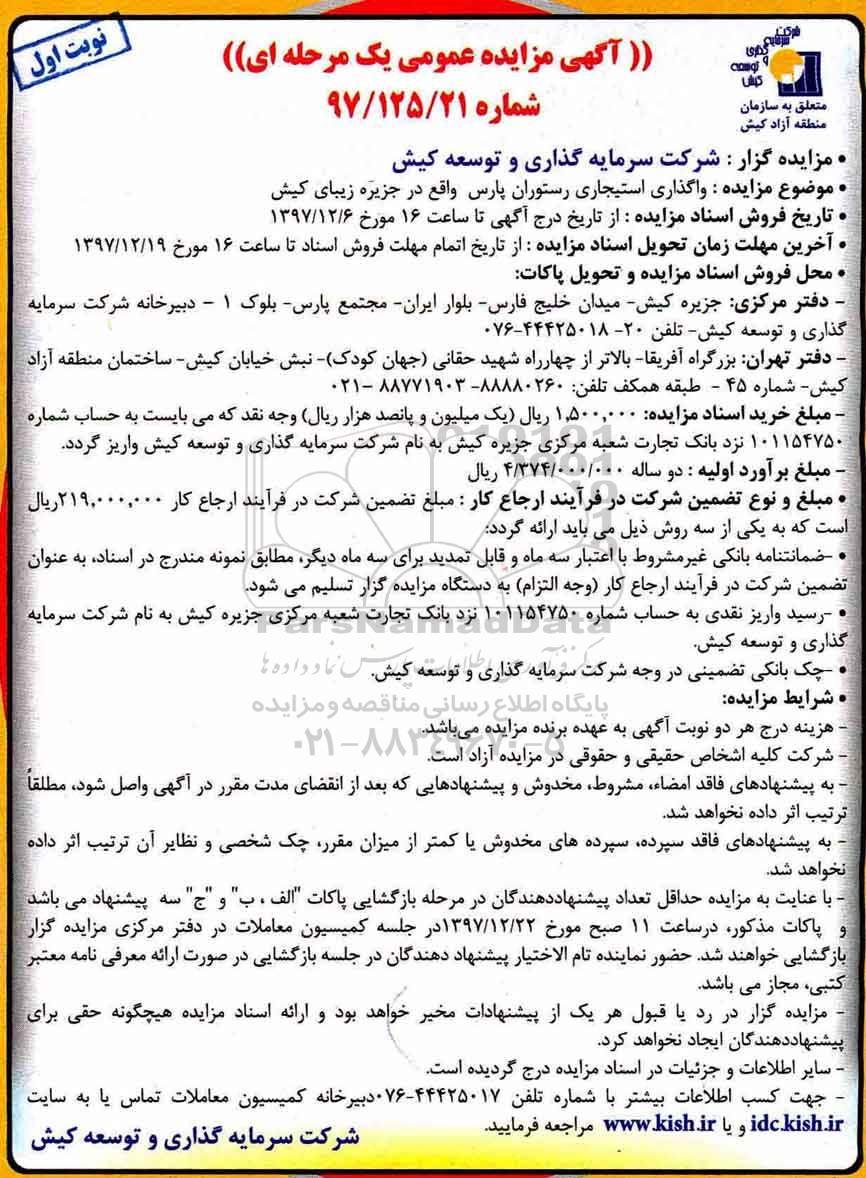 نوبت اول
شرکت سرمایه گذاری و توسعه کیش
متعلق به سازمان
منطقه آزاد کیش
(( آگهی مزایده عمومی یک مرحله ای))
شماره ۹۷/۱۲۵/۲۱
• مزایده گزار : شرکت سرمایه گذاری و توسعه کیش
• موضوع مزایده : واگذاری استیجاری رستوران پارس واقع در جزیره زیبای کیش
• تاریخ فروش اسناد مزایده : از تاریخ درج آگهی تا ساعت ۱۶ مورخ ۱۳۹۷/۱۲/۶
• آخرین مهلت زمان تحویل اسناد مزایده : از تاریخ اتمام مهلت فروش اسناد تا ساعت ۱۶ مورخ ۱۳۹۷/۱۲/۱۹
• محل فروش اسناد مزایده و تحویل پاکات:
- دفتر مرکزی: جزیره کیش- میدان خلیج فارس- بلوار ایران- مجتمع پارس- بلوک ۱ - دبیرخانه شرکت سرمایه
گذاری و توسعه کیش- تلفن ۲۰- ۰۷۶-۴۴۴۲۵۰۱۸
- دفتر تهران: بزرگراه آفریقا- بالاتر از چهارراه شهید حقانی (جهان کودک)- نبش خیابان کیش- ساختمان منطقه آزاد
کیش- شماره ۴۵ - طبقه همکف تلفن: ۸۸۸۸۰۲۶۰- ۸۸۷۷۱۹۰۳ -۰۲۱
- مبلغ خرید اسناد مزایده: ۱,۵۰۰,۰۰۰ ریال (یک میلیون و پانصد هزار ریال) وجه نقد که می بایست به حساب شماره
۱۰۱۱۵۴۷۵۰ نزد بانک تجارت شعبه مرکزی جزیره کیش به نام شرکت سرمایه گذاری و توسعه کیش واریز گردد.
- مبلغ برآورد اولیه : دو ساله ۴/۳۷۴/۰۰۰/۰۰۰ ریال
• مبلغ و نوع تضمین شرکت در فرآیند ارجاع کار : مبلغ تضمین شرکت در فرآیند ارجاع کار ۲۱۹,۰۰۰,۰۰۰ریال
است که به یکی از سه روش ذیل می باید ارائه گردد:
• -ضمانتنامه بانکی غیرمشروط با اعتبار سه ماه و قابل تمدید برای سه ماه دیگر، مطابق نمونه مندرج در اسناد، به عنوان
تضمین شرکت در فرآیند ارجاع کار (وجه التزام) به دستگاه مزایده گزار تسلیم می شود.
• -رسید واریز نقدی به حساب شماره ۱۰۱۱۵۴۷۵۰ نزد بانک تجارت شعبه مرکزی جزیره کیش به نام شرکت سرمایه
گذاری و توسعه کیش.
ParsNamadData
• -چک بانکی تضمینی در وجه شرکت سرمایه گذاری و توسعه کیش.
• شرایط مزایده:
پایگاه اطلاع رسانی مناقصه و مزایده
- هزینه درج هر دو نوبت آگهی به عهده برنده مزایده می‌باشد.
۰۲۱-۸۸۳۴۹۶۷۰-۵
- شرکت کلیه اشخاص حقیقی و حقوقی در مزایده آزاد است.
- به پیشنهادهای فاقد امضاء، مشروط، مخدوش و پیشنهادهایی که بعد از انقضای مدت مقرر در آگهی واصل شود، مطلقاً
ترتیب اثر داده نخواهد شد.
- به پیشنهادهای فاقد سپرده، سپرده های مخدوش یا کمتر از میزان مقرر، چک شخصی و نظایر آن ترتیب اثر داده
نخواهد شد.
- با عنایت به مزایده حداقل تعداد پیشنهاددهندگان در مرحله بازگشایی پاکات "الف ، ب" و "ج" سه پیشنهاد می باشد
و پاکات مذکور، درساعت ۱۱ صبح مورخ ۱۳۹۷/۱۲/۲۲در جلسه کمیسیون معاملات در دفتر مرکزی مزایده گزار
بازگشایی خواهند شد. حضور نماینده تام الاختیار پیشنهاد دهندگان در جلسه بازگشایی در صورت ارائه معرفی نامه معتبر
کتبی، مجاز می باشد.
- مزایده گزار در رد یا قبول هر یک از پیشنهادات مخیر خواهد بود و ارائه اسناد مزایده هیچگونه حقی برای
پیشنهاددهندگان ایجاد نخواهد کرد.
- سایر اطلاعات و جزئیات در اسناد مزایده درج گردیده است.
- جهت کسب اطلاعات بیشتر با شماره تلفن ۰۷۶-۴۴۴۲۵۰۱۷دبیرخانه کمیسیون معاملات تماس یا به سایت
idc.kish.ir و یا www.kish.ir مراجعه فرمایید.
شرکت سرمایه گذاری و توسعه کیش